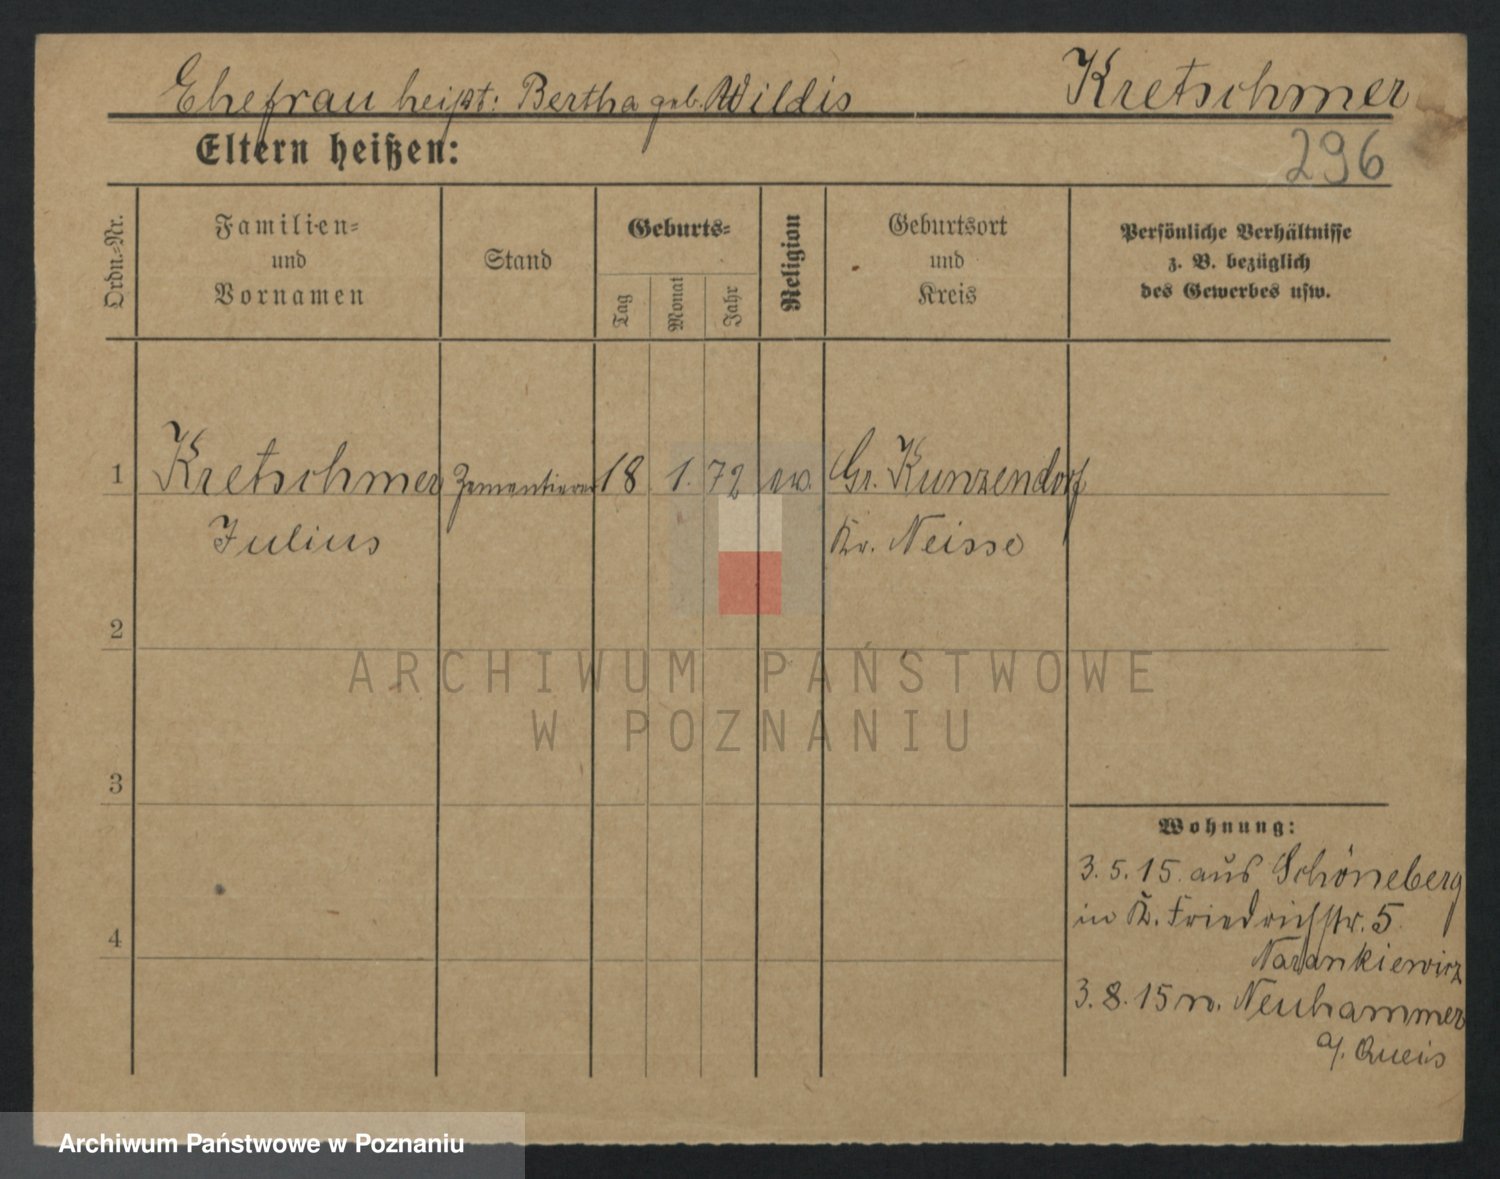 Ehefrau heißt: Bertha geb. Wildis
Kretschmer
Eltern heißen:
296
Ordn.-Nr.
Familien-
und
Vornamen
Stand
Geburts-
Tag
Monat
Jahr
Religion
Geburtsort
und
Kreis
Persönliche Verhältnisse
z. B. bezüglich
des Gewerbes usw.
1 Kretschmer Zementierer 18 1. 72 ev. Gr. Kunzendorf
Julius Kr. Neisse
2
ARCHIWUM PAŃSTWOWE
W POZNANIU
3
Wohnung:
3. 5. 15. aus Schöneberg
in K. Friedrichstr. 5.
4
3. 8. 15 n. Neuhammer
a/. Queis
Archiwum Państwowe w Poznaniu